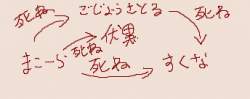 死ね ごじょうさとる 死ね
伏黒
まこーら 死ね すくな
死ね